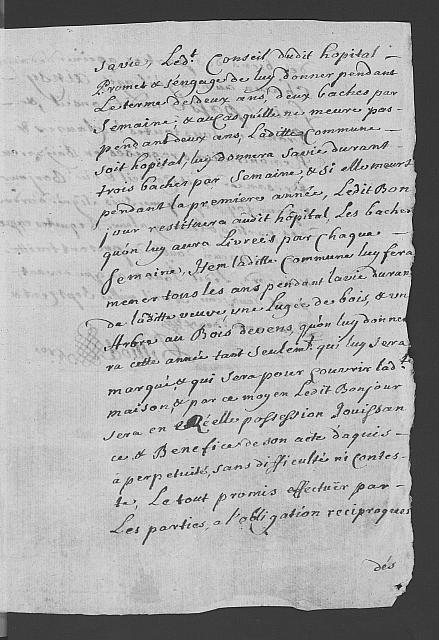 Savie, Led.t Conseil dudit hôpital
Promet & s'engage de luy donner pendant
Le terme de deux ans, deux baches par
Semaine, & au cas qu'elle ne meure pas
pendant deux ans, Laditte Commune
soit hôpital, luy donnera Savie durant
trois baches par Semaine, & Si elle meurt
pendant la premiere année, Ledit Bon
jour restituera audit hôpital, Les baches
qu'on luy aura Livrées par Chaque
Semaine, Item laditte Commune luy fera
mener tous les ans pendant lavie duran
de laditte veuve une Lugée de bois, & un
Arbre au Bois devens, qu'on luy donne
ra cette année tant seulem.t qui luy sera
marqué, & qui sera pour couvrir lad.te
maison, & par ce moyen Ledit Bonjour
sera en Réelle possession Jouissan
ce & Benefice de son acte d'aquis
à perpetuité, sans difficulté ni contes
te, Le tout promis effectuër par
Les parties, a l'obligation reciproques
dés